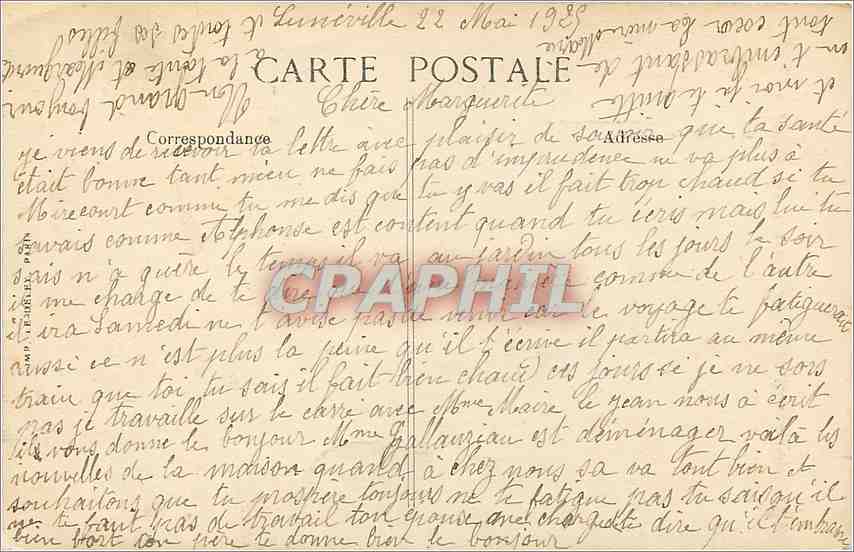 Lunéville 22 Mai 19
CARTE POSTALE
Chère Marguerite
Correspondance
Adresse
je viens de recevoir ta lettre avec plaisir de savoir que ta santé
était bonne tant mieu ne fais pas d'imprudence ne va plus à
Mirecourt comme tu me dis que tu y vas il fait trop chaud si tu
savais comme Alphonse est content quand tu écris mais lui tu
sais n'a guère le temps il va au jardin tous les jours le soir
il me charge de te dire que comme de l'autre
il ira Samedi ne t'avise pas de venir car le voyage te fatiguerai
aussi ce n'est plus la peine qu'il t'écrive il partira au même
train que toi tu sais il fait bien chaud ces jours si je ne sors
pas je travaille sur le carré avec Mme Maire le jean nous à écrit
ils vous donne le bonjour Mme est déménager voilà les
nouvelles de la maison quand à chez nous sa va tout bien et
souhaitons que tu prospère toujours ne te fatigue pas tu sais qu'il
ne te faut pas de travail ton époux me charge de te dire qu'il t'embrasse
bien fort ton père te donne bien le bonjour
Mon grand bonjour
à la tante et Marguerite
et toutes ses filles
et moi je te quitte
en t'embrassant de
tout coeur ta mère Marie
CPAPHIL